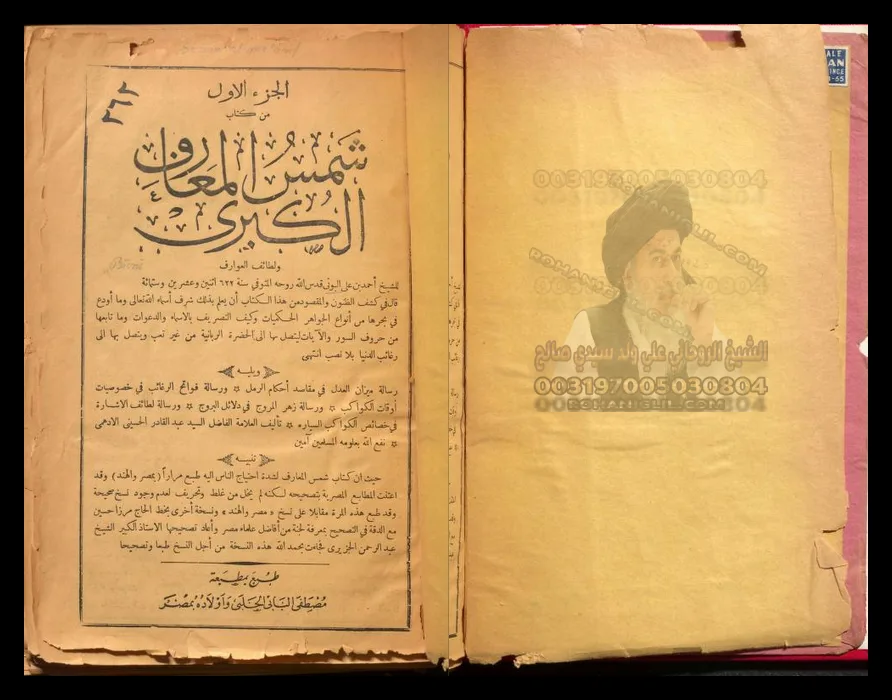 ٣٦٢
الجزء الاول
من كتاب
شمس المعارف
الكبرى
ولطائف العوارف
للشيخ أحمد بن على البونى قدس الله روحه المتوفي سنة ٦٢٢ اثنين وعشرين وستمائة
قال في كشف الظنون والمقصود من هذا الكتاب أن يعلم بذلك شرف أسماء الله تعالى وما أودع
في بحرها من أنواع الجواهر الحكميات وكيف التصريف بالاسماء والدعوات وما تابعها
من حروف السور والآيات ليتصل بها الى الحضرة الربانية من غير تعب ويتصل بها الى
رغائب الدنيا بلا نصب انتهى
ويليه
رسالة ميزان العدل في مقاصد أحكام الرمل ❊ ورسالة فواتح الرغائب في خصوصيات
أوقات الكواكب ❊ ورسالة زهر المروج في دلائل البروج ❊ ورسالة لطائف الاشارة
في خصائص الكواكب السياره ❊ تأليف العلامة الفاضل السيد عبد القادر الحسينى الادهمى
❊ نفع الله بعلومه المسلمين آمين
تنبيه
حيث ان كتاب شمس المعارف لشدة احتياج الناس اليه طبع مراراً (بمصر والهند) وقد
اعتنت المطابع المصرية بتصحيحه لكنه لم يخل من غلط وتحريف لعدم وجود نسخ صحيحة
وقد طبع هذه المرة مقابلا على نسخ «مصر والهند» ونسخة أخرى بخط الحاج مرزا حسين
مع الدقة في التصحيح بمعرفة لجنة من أفاضل علماء مصر وأعاد تصحيحها الاستاذ الكبير الشيخ
عبد الرحمن الجزيرى فجاءت بحمد الله هذه النسخة من أجل النسخ طبعا وتصحيحا
طبع بمطبعة
مصطفى البابى الحلبى وأولاده بمصر
ALE
AN
INCE
-65
003197005030804
ROHANIGUL.COM
الشيخ الروحاني علي ولد سيدي صالح
003197005030804
ROHANIGUL.COM